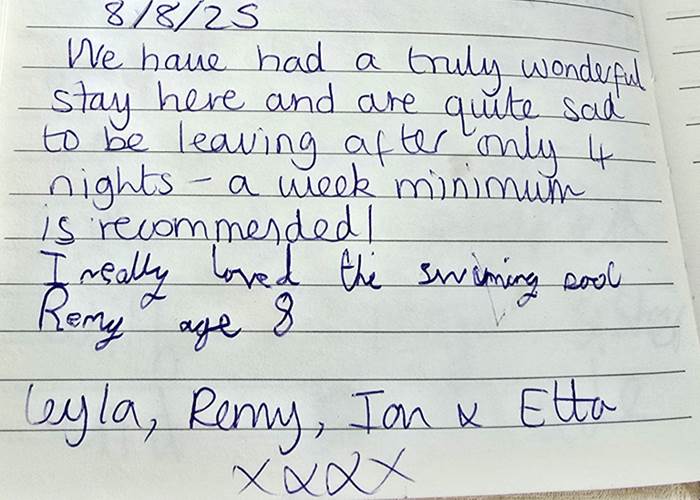 8/8/25
We have had a truly wonderful
stay here and are quite sad
to be leaving after only 4
nights - a week minimum
is recommended!
I really loved the swiming pool
Remy age 8
Leyla, Remy, Ian & Etta
xxxx